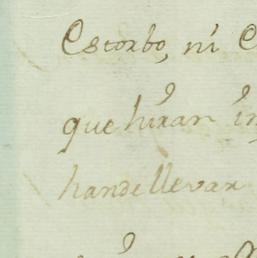 Estorbo, ni
que huran
handellevar